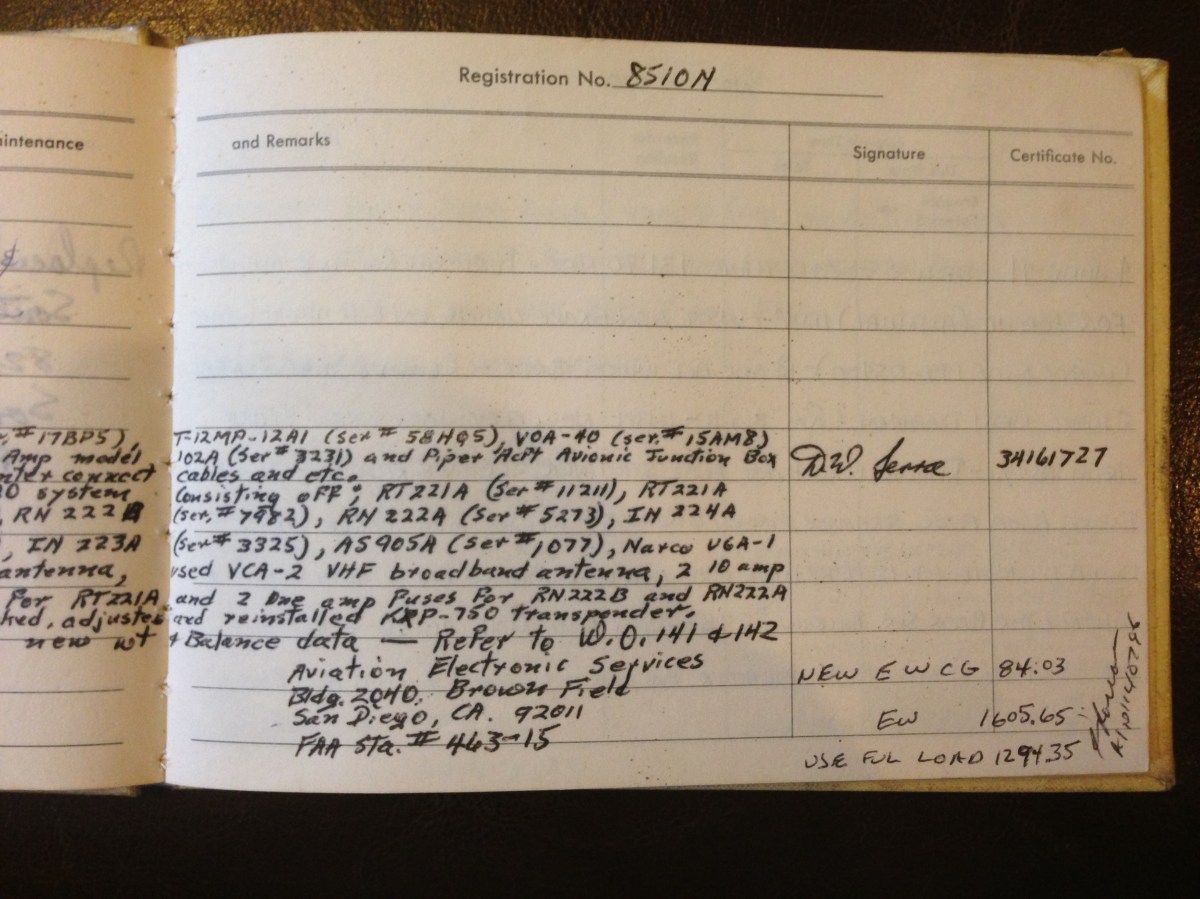 Registration No. 8510N
aintenance
and Remarks
Signature
Certificate No.
r. # 17BP5), T-12MA-12A1 (ser # 58HQ5), VOA-40 (ser. # 15AM8)
Amp model 102A (ser # 3231) and Piper Acft Avionic Junction Box
nter connect cables and etc.
D.W.
34161727
0 system consisting off; RT221A (ser # 11211), RT221A
, RN 222B (ser, # 7982), RN 222A (ser # 5273), IN 224A
, IN 223A (ser # 3325), AS905A (ser #1077), Narco UGA-1
antenna, used VCA-2 VHF broadband antenna, 2 10 amp
for RT221A and 2 One amp Fuses for RN222B and RN222A
ked, adjusted and reinstalled KXP-750 transponder.
new wt & Balance data — Refer to W.O. 141 & 142
Aviation Electronic Services
Bldg. 2040. Brown Field
San Diego, CA. 92011
FAA Sta. # 463-15
NEW EWCG 84.03
EW 1605.65
USEFUL LOAD 1294.35